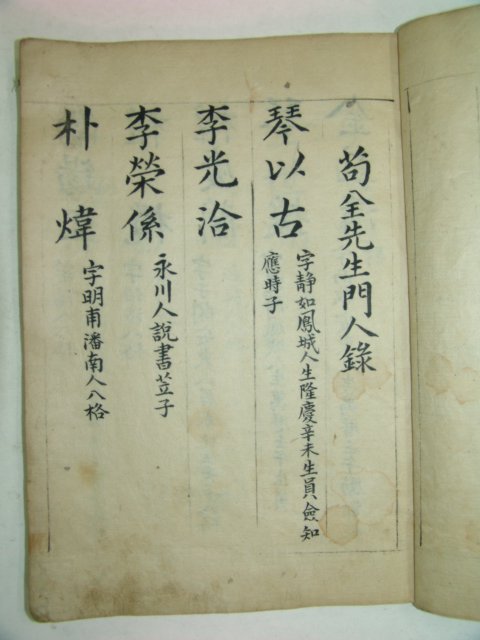 苟全先生門人錄
琴以古
字靜如鳳城人生隆慶辛未生員僉知
應時子
李光洽
李榮係
永川人說書苙子
朴煒
字明甫潘南人八格